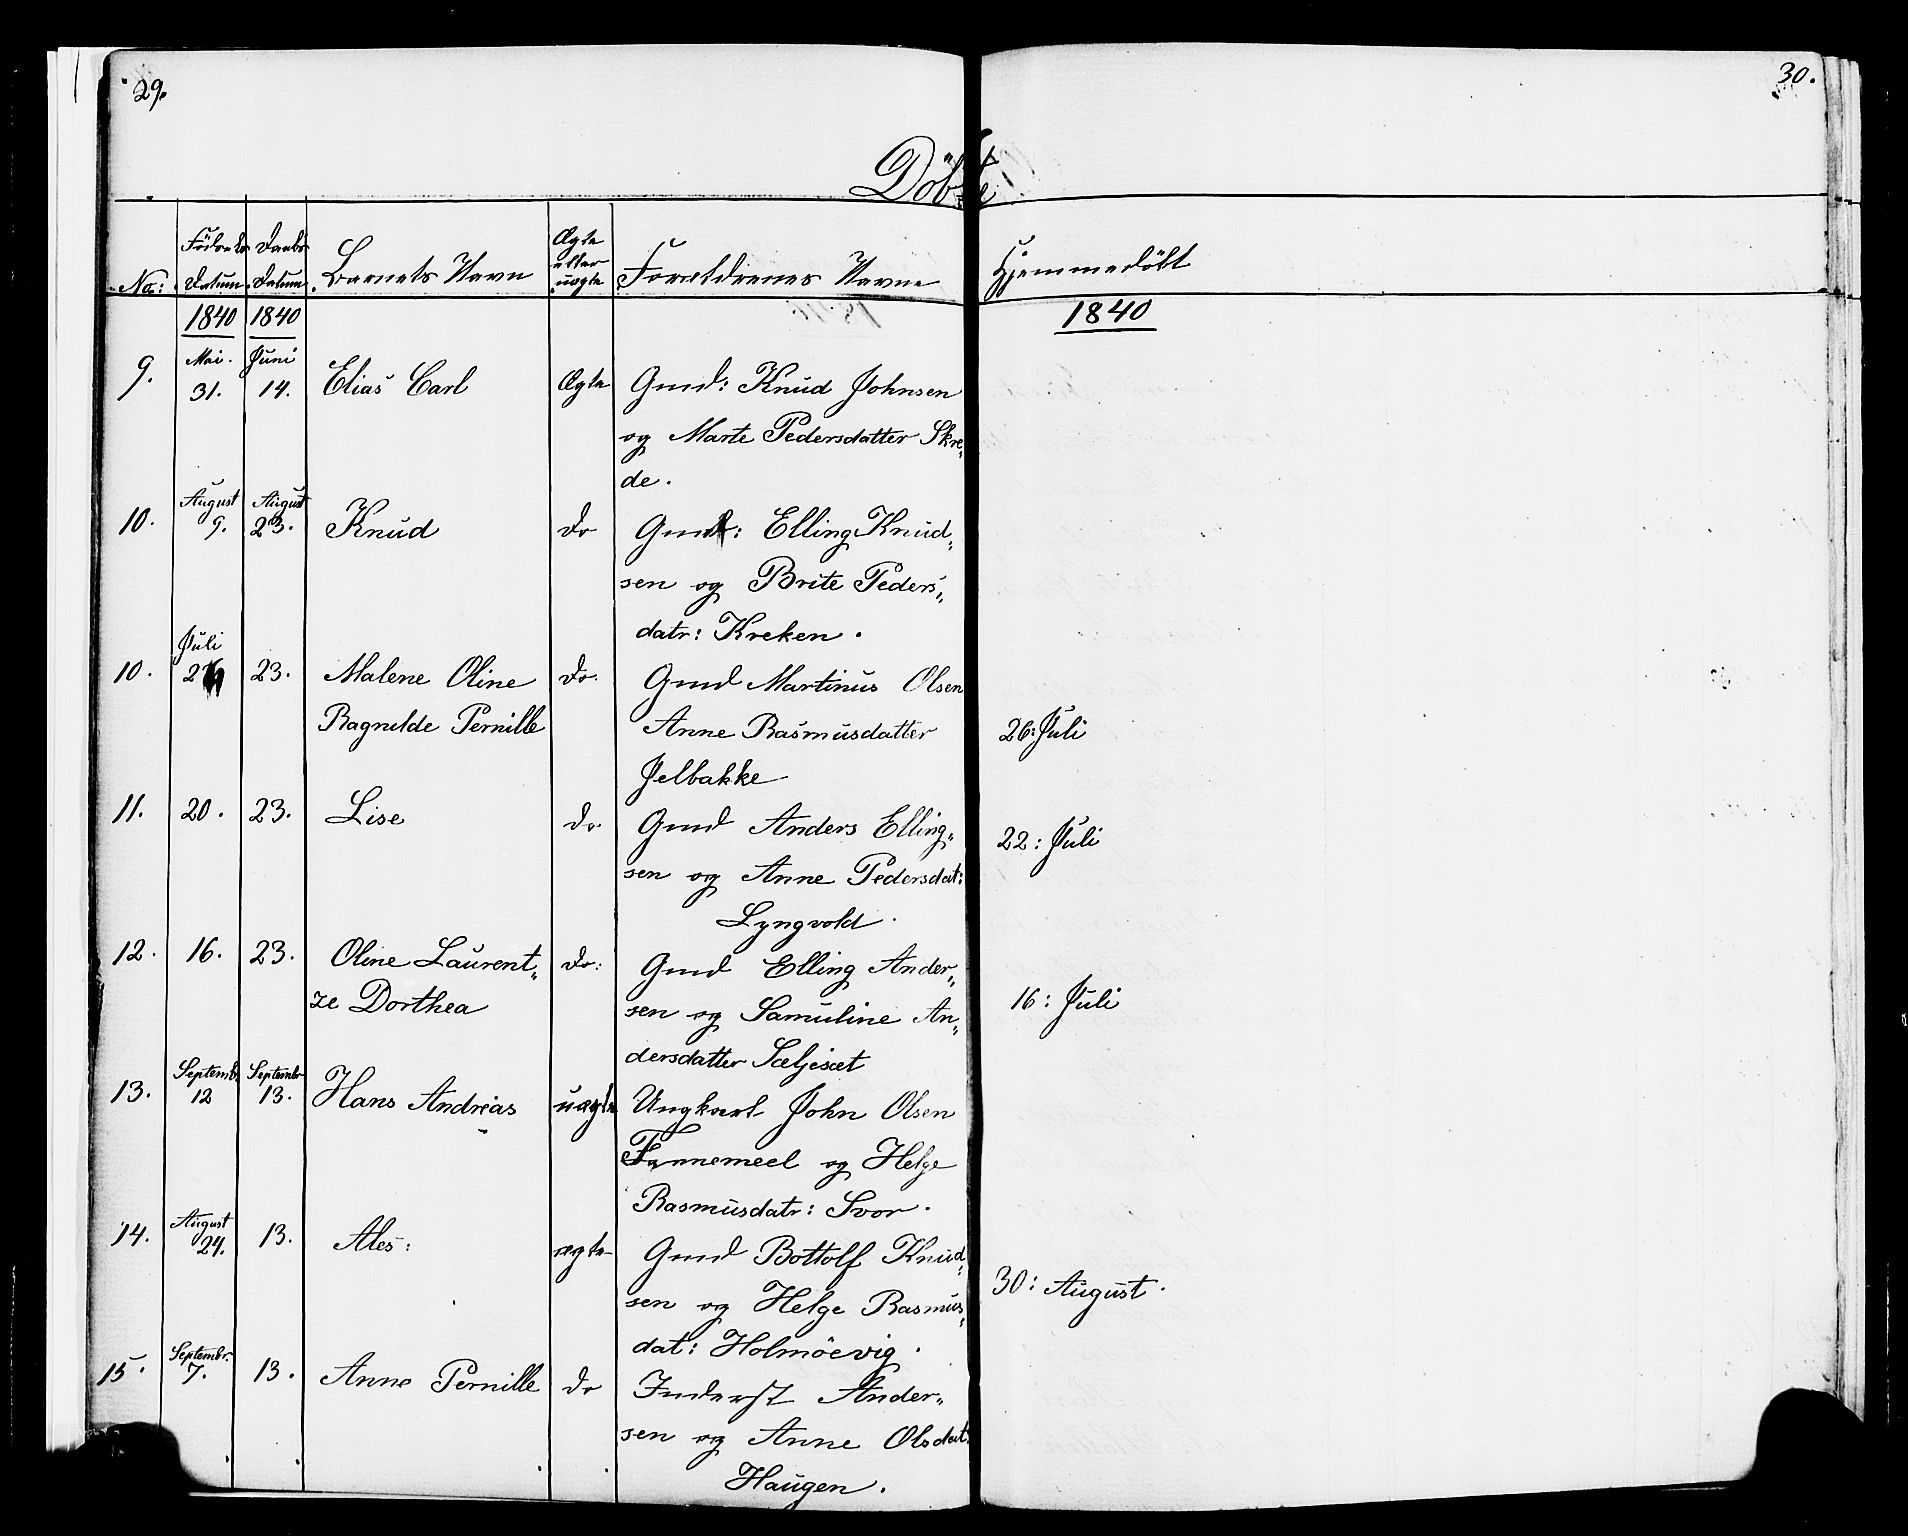 29.
30.
Döbte
No:
Födsels Datum
Daabs Datum
Barnets Navn
Ægte eller uægte
Forældrenes Navne
Hjemmedöbt
1840 1840 1840
9. Mai. 31. Juni 14. Elias Carl Ægte Gmd: Knud Johnsen
og Marte Pedersdatter Skre„
de.
10. August 9. August 23. Knud Do Gmd: Elling Knud„
sen og Brite Peders„
datr: Kreken.
10. Juli 23. Malene Oline Do. Gmd Martinus Olsen
Ragnilde Pernille Anne Rasmusdatter 26: Juli
Jelbakke
11. 20. 23. Lise Do Gmd Anders Elling„ 22: Juli
sen og Anne Pedersdat:
Lyngvold.
12. 16. 23. Oline Laurent„ Do: Gmd Elling Ander„
ze Dorthea sen og Samuline An„ 16: Juli
dersdatter Sæljesæt
13. Septembr 12 Septembr 13. Hans Andreas uægte Ungkarl John Olsen
og Helge
Rasmusdatr: Svor.
14. August 24. 13. Ales: ægte Gmd Bottolf Knud„
sen og Helge Rasmus„ 30: August.
dat: Holmöevig.
15. Septembr. 7. 13. Anne Pernille Do Inderst Ander„
sen og Anne Olsdat.
Haugen.